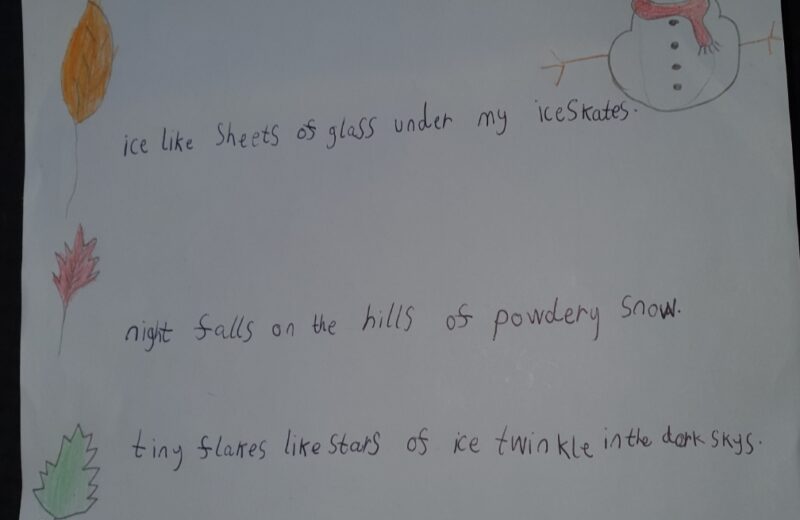 ice like sheets of glass under my iceskates.
night falls on the hills of powdery snow.
tiny flakes like stars of ice twinkle in the dark skys.